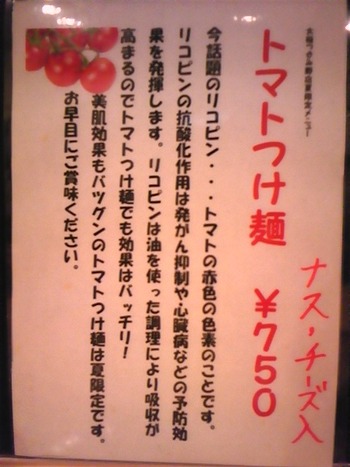 トマトつけ麺 ￥750
ナス，チーズ入
今話題のリコピン・・・トマトの赤色の色素のことです。
リコピンの抗酸化作用は発がん抑制や心臓病などの予防効
果を発揮します。リコピンは油を使った調理により吸収が
高まるのでトマトつけ麺でも効果はバッチリ！
美肌効果もバツグンのトマトつけ麺は夏限定です。
お早目にご賞味ください。